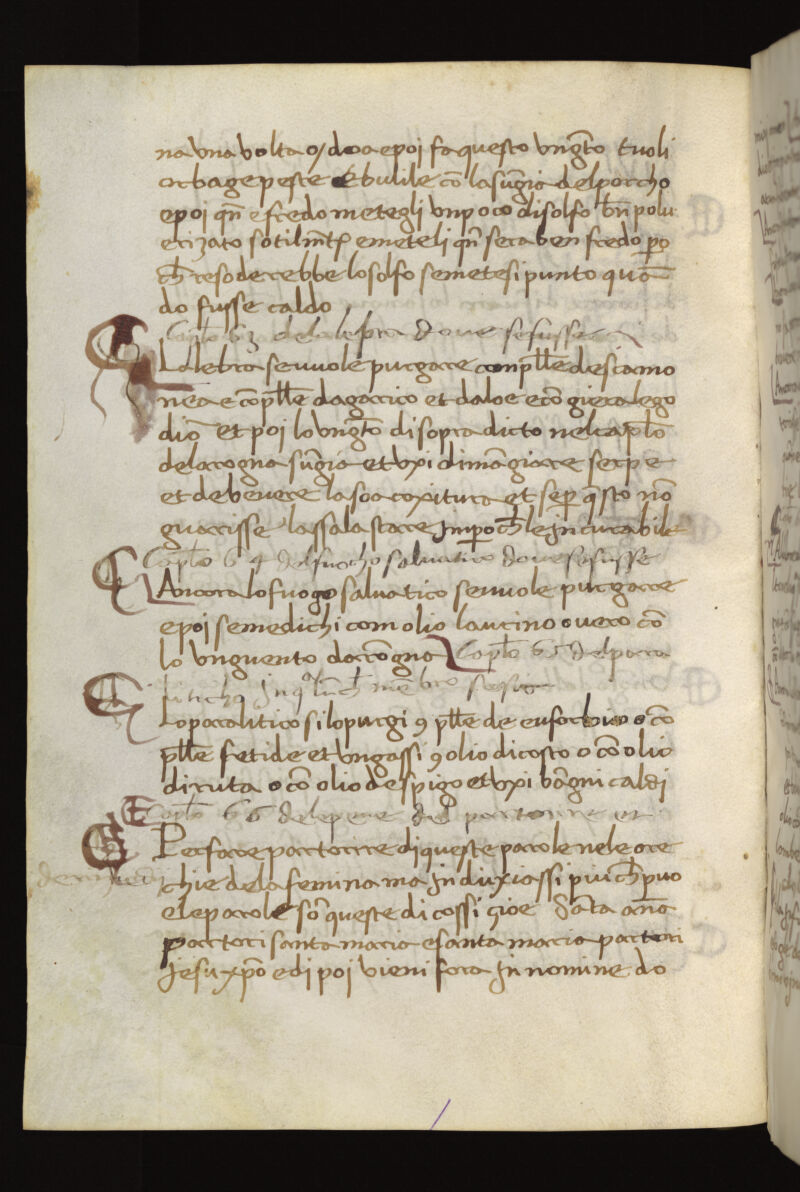 na una volta o doa e poi fa questo ungto tuoli
orbage peste e bulile cō la sungia del porcho
e poi qñ e fredo metegli un poco di solfo bñ polu
erizato sotilmt̄ e meteli qñ sera ben fredo ꝑo
ch̄ resoderebbe lo solfo se metesi punto quā
do fusse caldo
Caplo 63 de la lepra dove se fusse
La lebra se vuole purgare con pille de scamo
nea e cō pille dagarico et daloe e cō giera lego
diō et poi lo ungto di sopra dicto nel caplo
dela rogna sungia et uxi di māgiare serpe
et de bevere la soa coxitura et se ꝑ questo nō
guarisse lassala stare inperoch̄ le incurabile
Caplo 64 del fuocho salvatico dove se fusse
Ancora lo fuogo salvatico se vuole purgare
e poi se medichi com olio laurino overo cō
lo unguento da rōgna Caplo 65 del para
liticho in qluch̄ mēbro se sia
Lo paralitico si lo purgi 9 pille de euforbio o cō
pille fetide et ungassi 9 olio di costo o cō olio
di ruta o cō olio de spigo et uxi bāgni caldi
Caplo 66 de le pere del partorire et
Per fare partorire di queste parole nele ore
chie de la femina ma induxiassi piu ch̄ puo
e le parole sō queste di cossi zioe Sāta anā
partori santa maria e santa maria partori
Jesu xpō e di poi vieni fora In nomine do